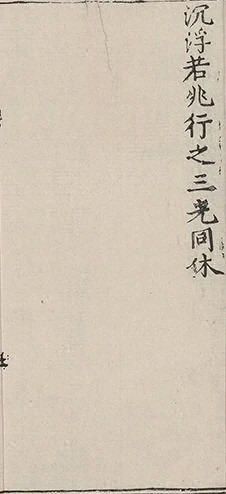 沉浮若兆行之三光同休